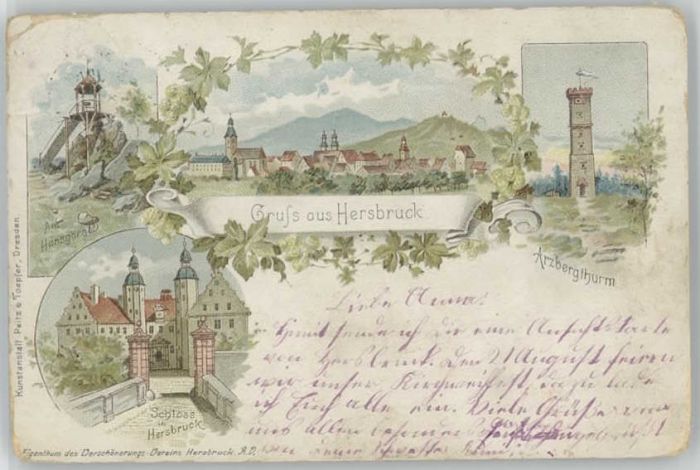 Gruß aus Hersbruck.
Am Hansgörgl
Arzbergthurm
Schloss in Hersbruck.
Kunstanstalt Peitz & Toepfer, Dresden.
Eigenthum des Verschönerungs-Vereins Hersbruck. A.D.
Liebe Anna!
Hiermit sende ich Dir eine Ansichtskarte
von Hersbruck. Den 21 August feiern
wir unser Kirchweihfest, dazu lade
ich Euch alle ein. Viele Grüße von
uns allen besonders
von